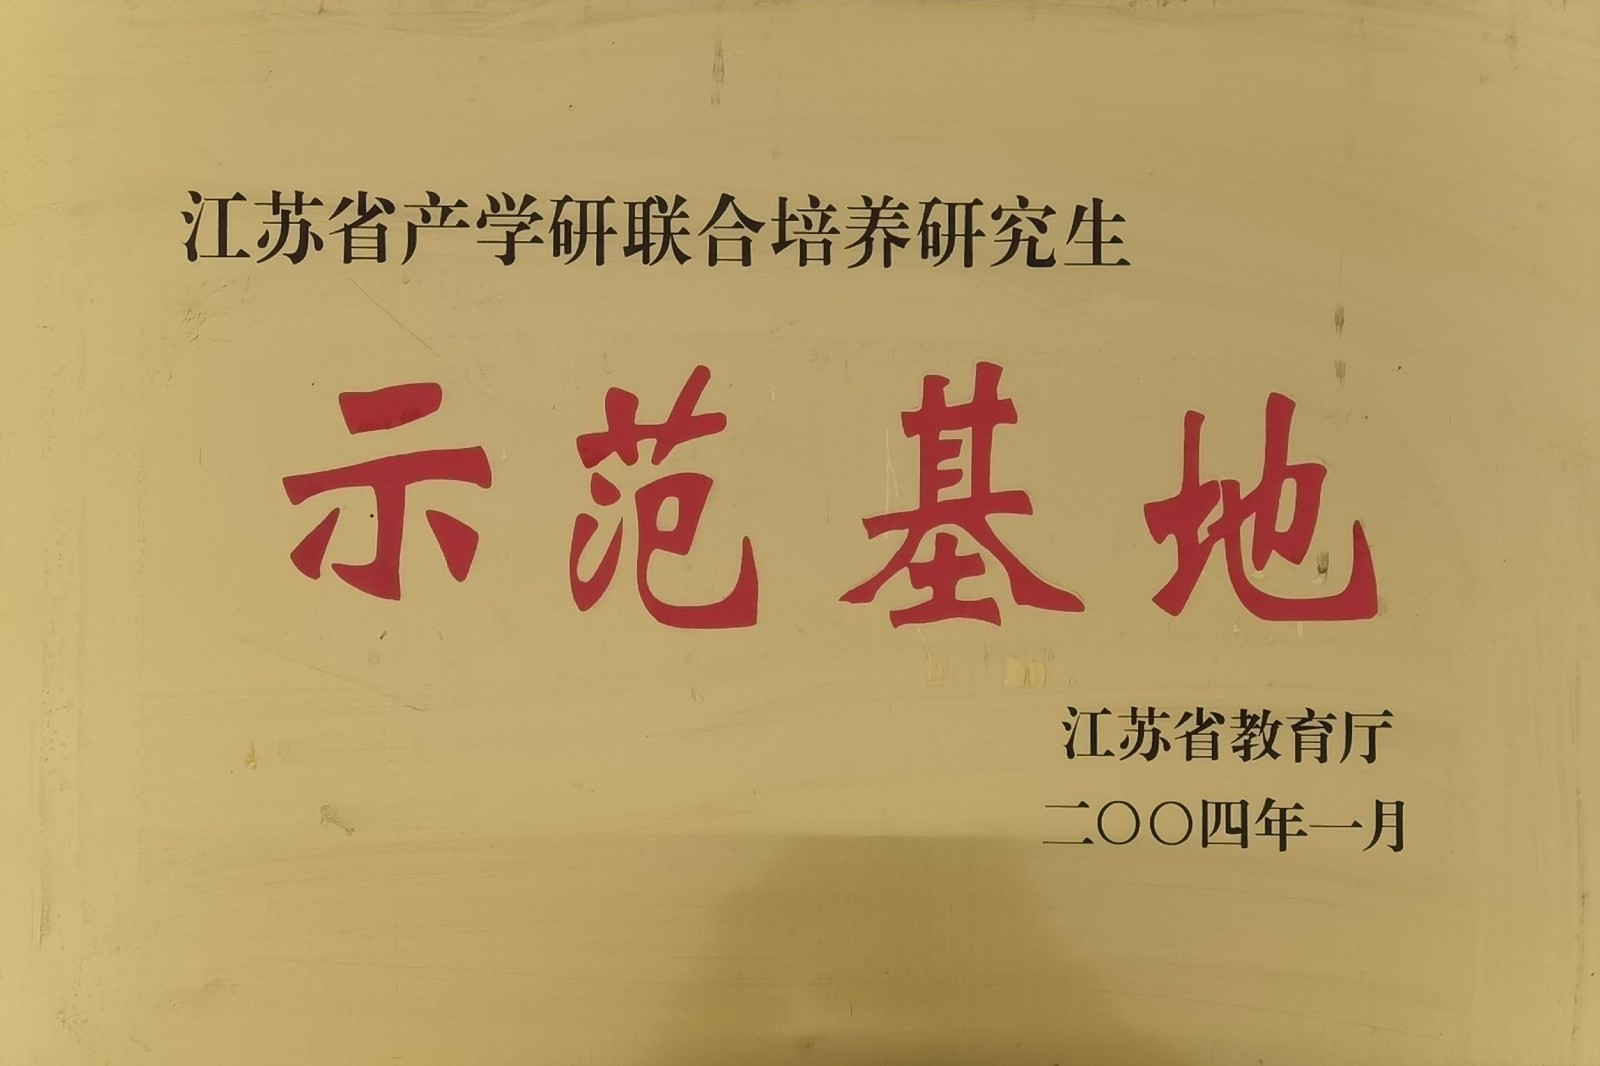 江苏省产学研联合培养研究生
示范基地
江苏省教育厅
二〇〇四年一月